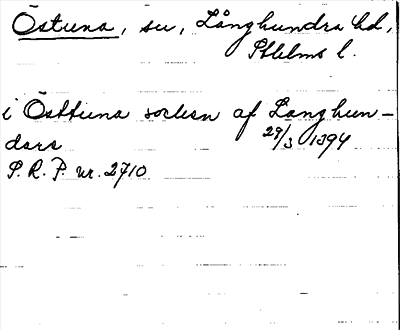 Östuna, sn, Långhundra hd,
Sthlms l.
i Østtuna soclısn af Langhun-
dara
29/3 1394
S. R. P. nr. 2710